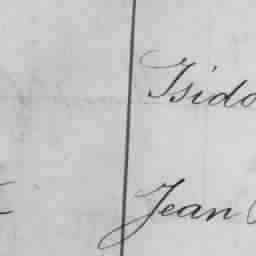 Isido
Jean